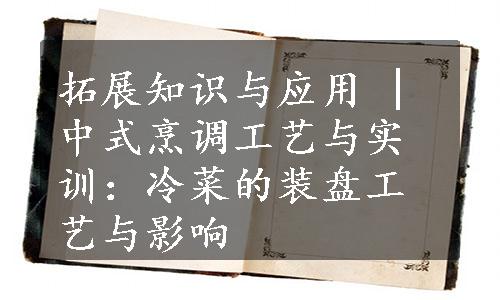 拓展知识与应用 |
中式烹调工艺与实
训：冷菜的装盘工
艺与影响